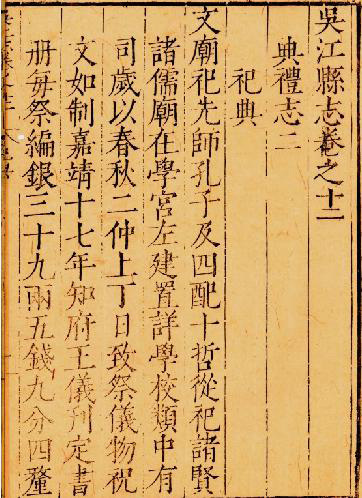 吳江縣志卷之十二
典禮志二
祀典
文廟祀先師孔子及四配十哲從祀諸賢
諸儒廟在學宮左建置詳學校類中有
司歲以春秋二仲上丁日致祭儀物祝
文如制嘉靖十七年知府王儀刊定書
册每祭編銀三十九兩五錢九分四釐